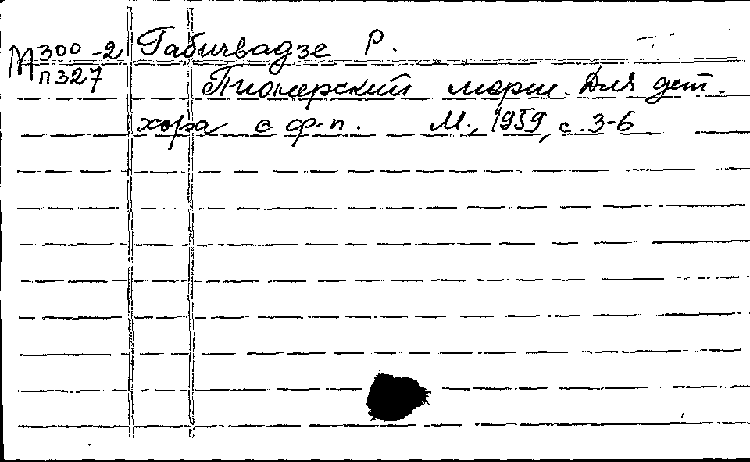 М 300-2 Габичвадзе Р.
п327 Пионерский марш. Для дет.
хора с ф-п. М., 1959, с. 3-6